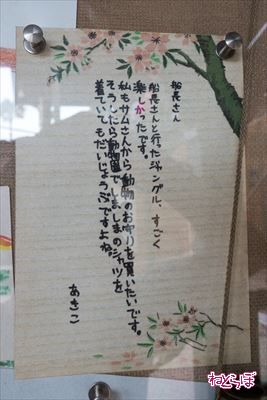 船長さん
船長さんと行ったジャングル、すごく
楽しかったです。
私もサムさんから動物のお守りを買いたいです。
そうしたら動物園でしましまのシャツを
着ていてもだいじょうぶですよね。
あきこ
ねとらぼ